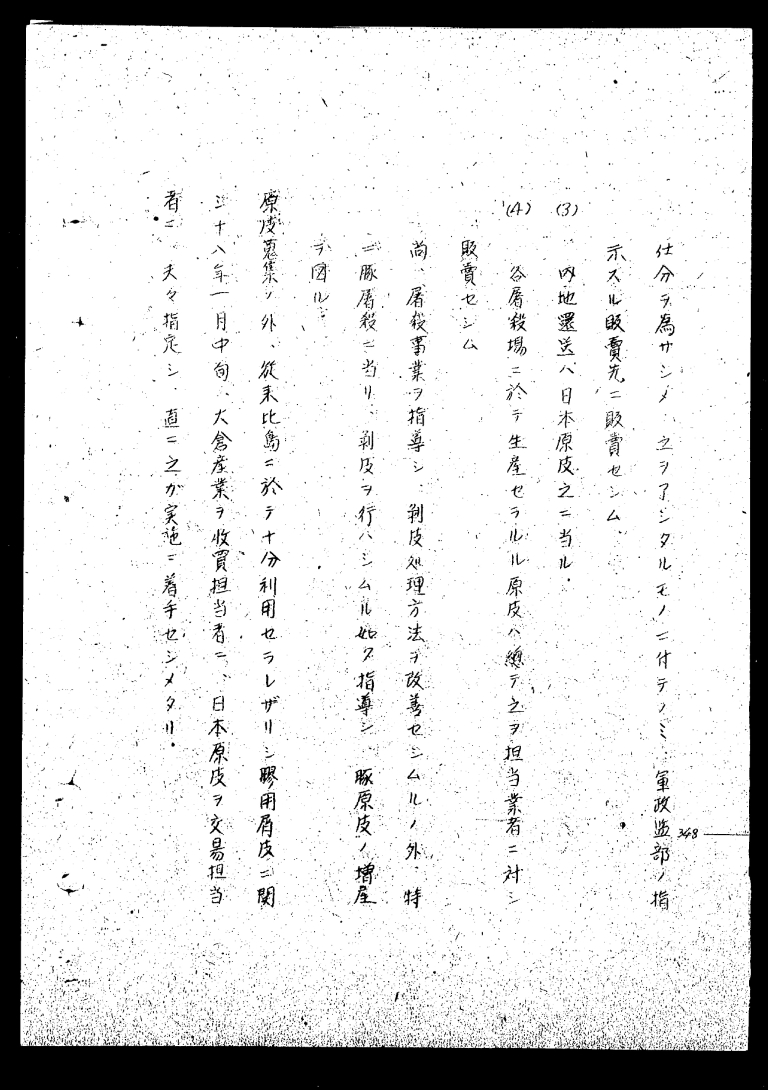 仕分ヲ為サシメ、之ヲアシタルモノニ付テノミ、軍政監部ノ指
示スル販賣先ニ販賣セシム、
(3) 内地還送ハ日本原皮之ニ当ル.
(4) 各屠殺場ニ於テ生産セラルル原皮ハ總テ之ヲ担当業者ニ対シ
販賣セシム
尚、屠殺事業ヲ指導シ、剥皮処理方法ヲ改善セシムルノ外、特
ニ豚屠殺ニ当リ、剥皮ヲ行ハシムル如ク指導シ、豚原皮ノ増産
ヲ図ル、
原皮蒐集ノ外、従来比島ニ於テ十分利用セラレザリシ膠用屑皮ニ関
シ十八年一月中旬、大倉産業ヲ收買担当者ニ、日本原皮ヲ交易担当
者ニ、夫々指定シ、直ニ之ガ実施ニ着手セシメタリ.
348